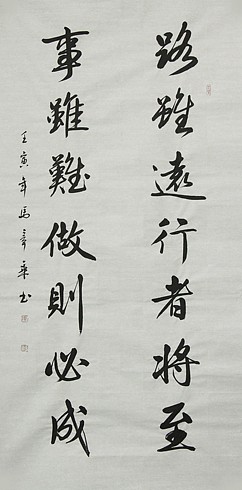 路雖遠行者將至
事雖難做則必成
壬寅年馬奇乘书